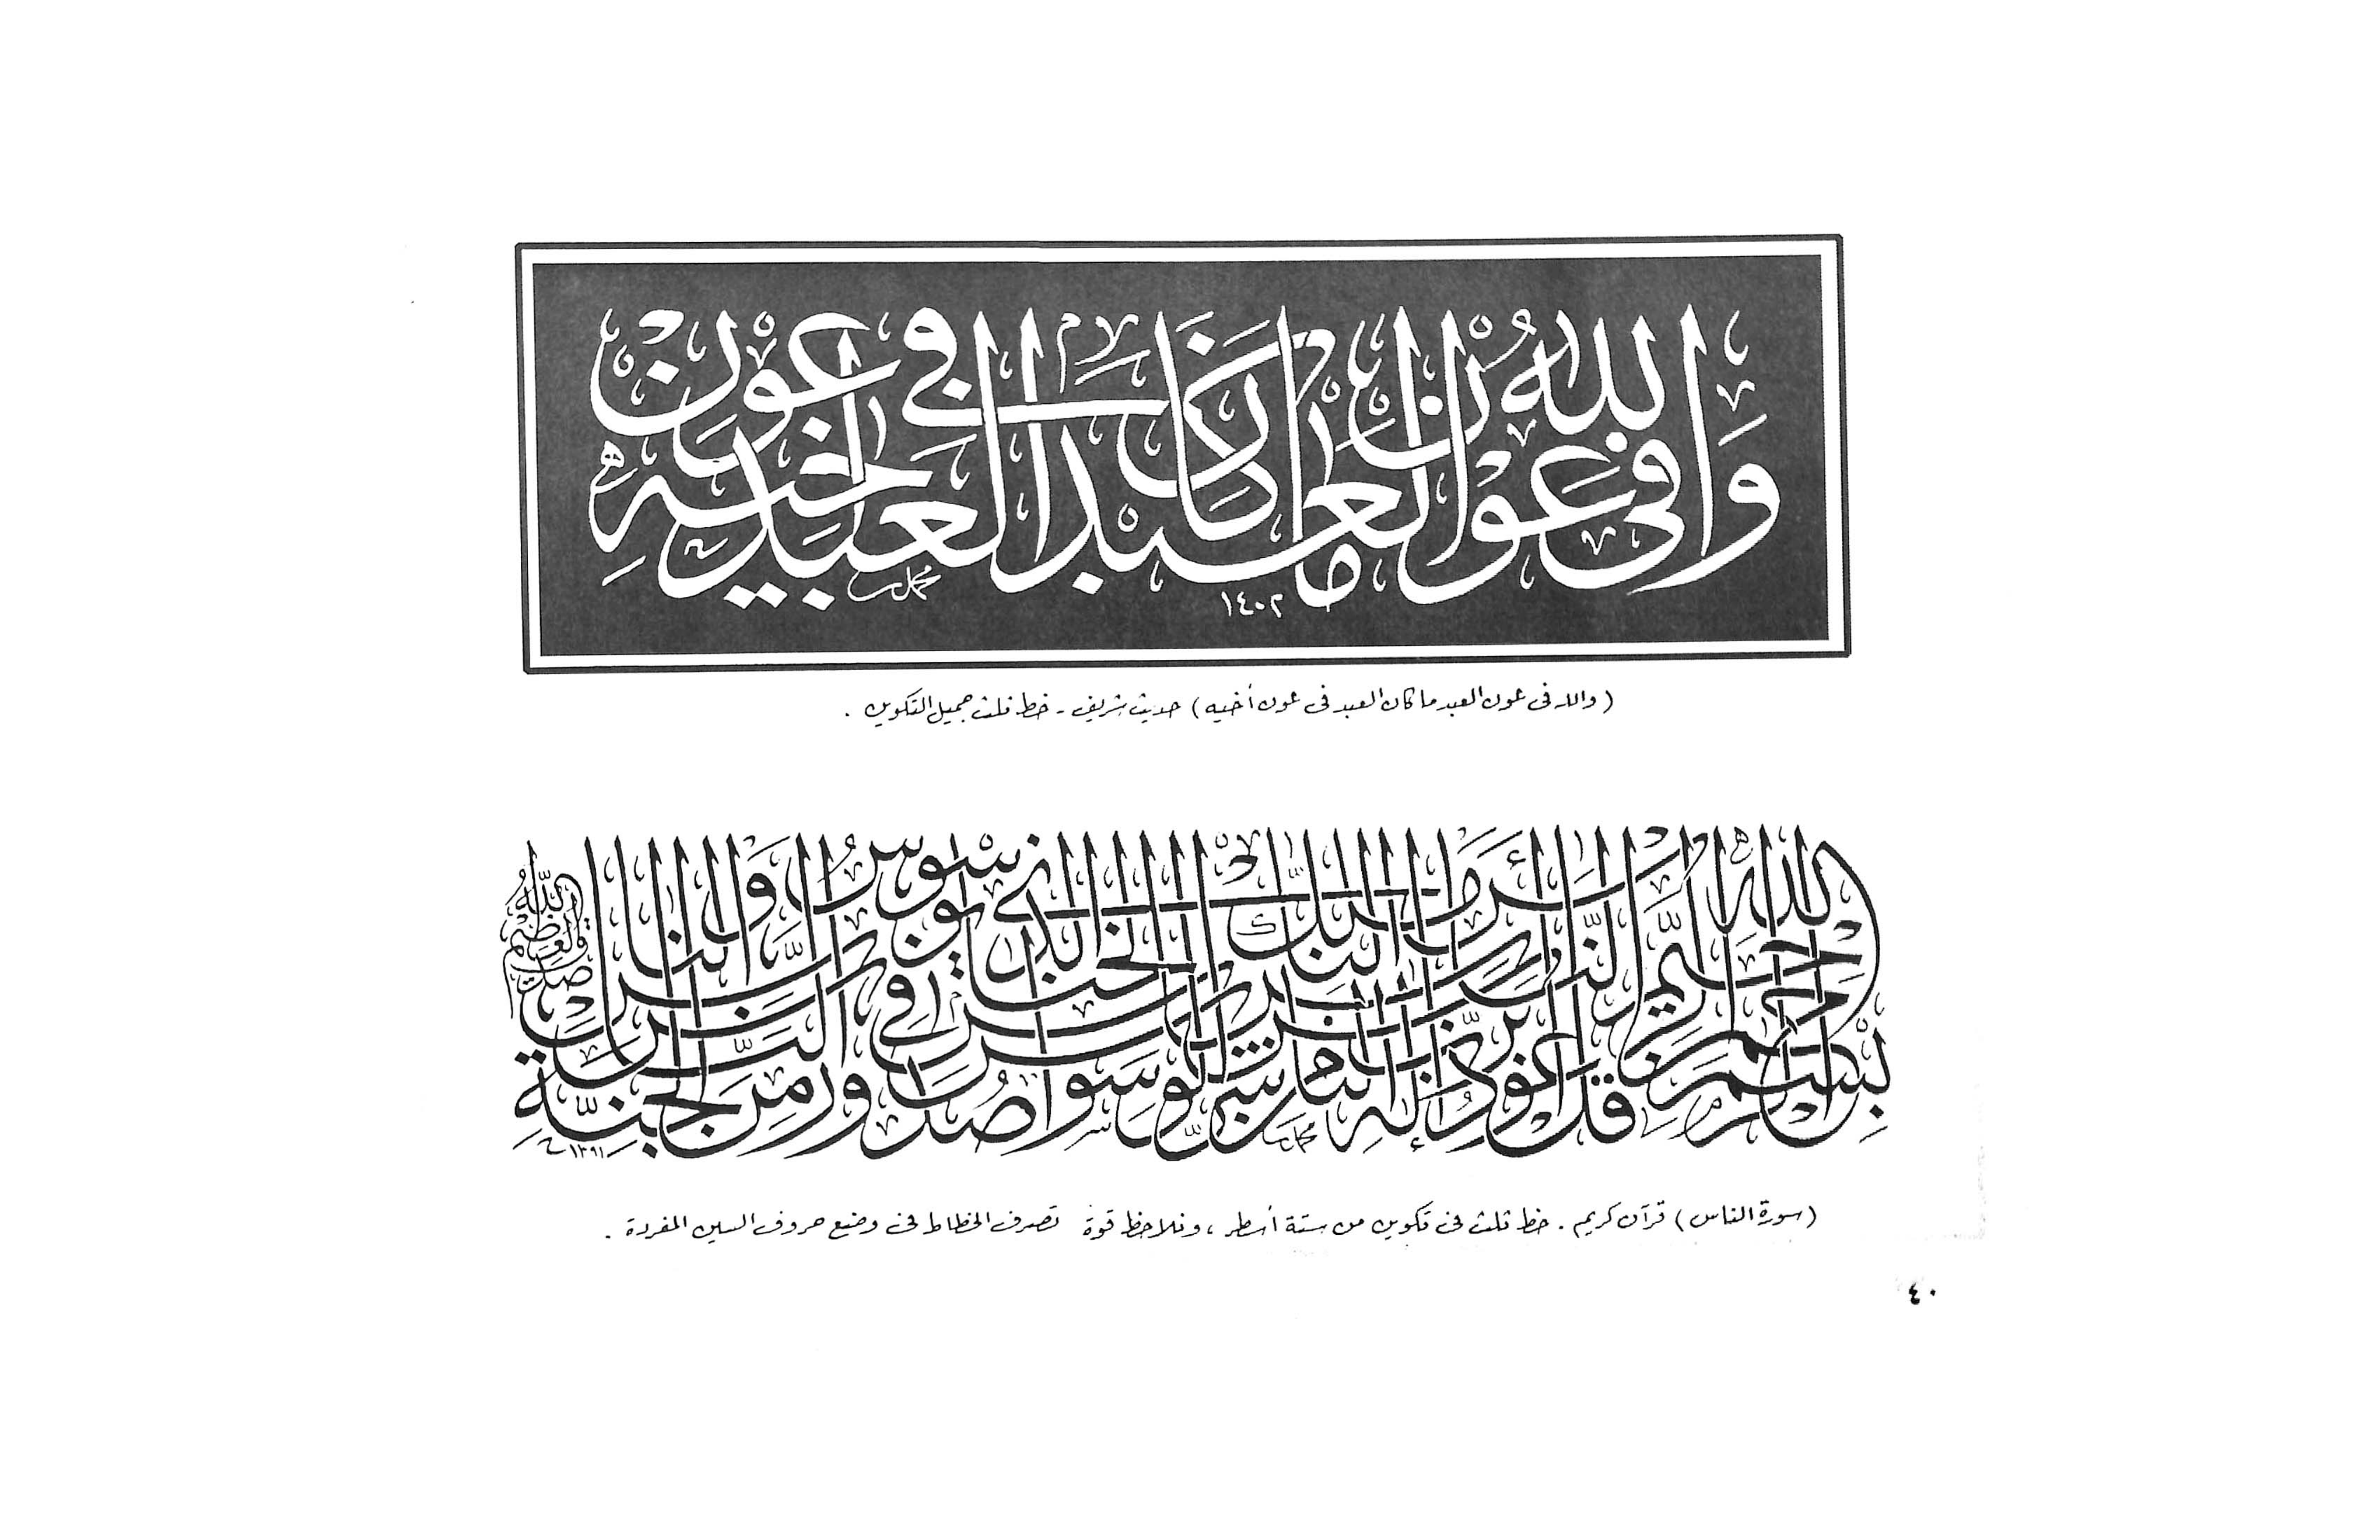 والله في عون العبد ما كان العبد في عون أخيه
محمد
١٤٠٢
(والله فى عون العبد ما كان العبد فى عون أخيه) حديث شريف - خط ثلث جميل التكوين .
بسم الله الرحمن الرحيم قل أعوذ برب الناس ملك الناس إله الناس من شر الوسواس الخناس الذي يوسوس في صدور الناس من الجنة والناس
صدق الله العظيم
محمد
١٣٩١
(سورة الناس) قرآن كريم . خط ثلث فى تكوين من ستة أسطر ، ونلاحظ قوة تصرف الخطاط فى وضع حروف السين المفردة .
٤٠